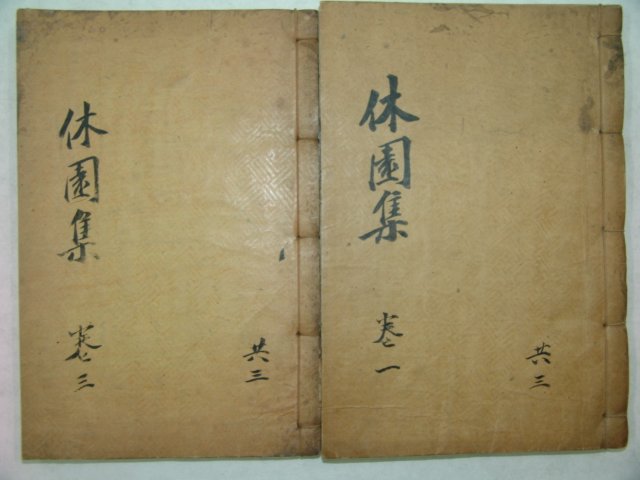 休園集
卷一
共三
休園集
卷三
共三